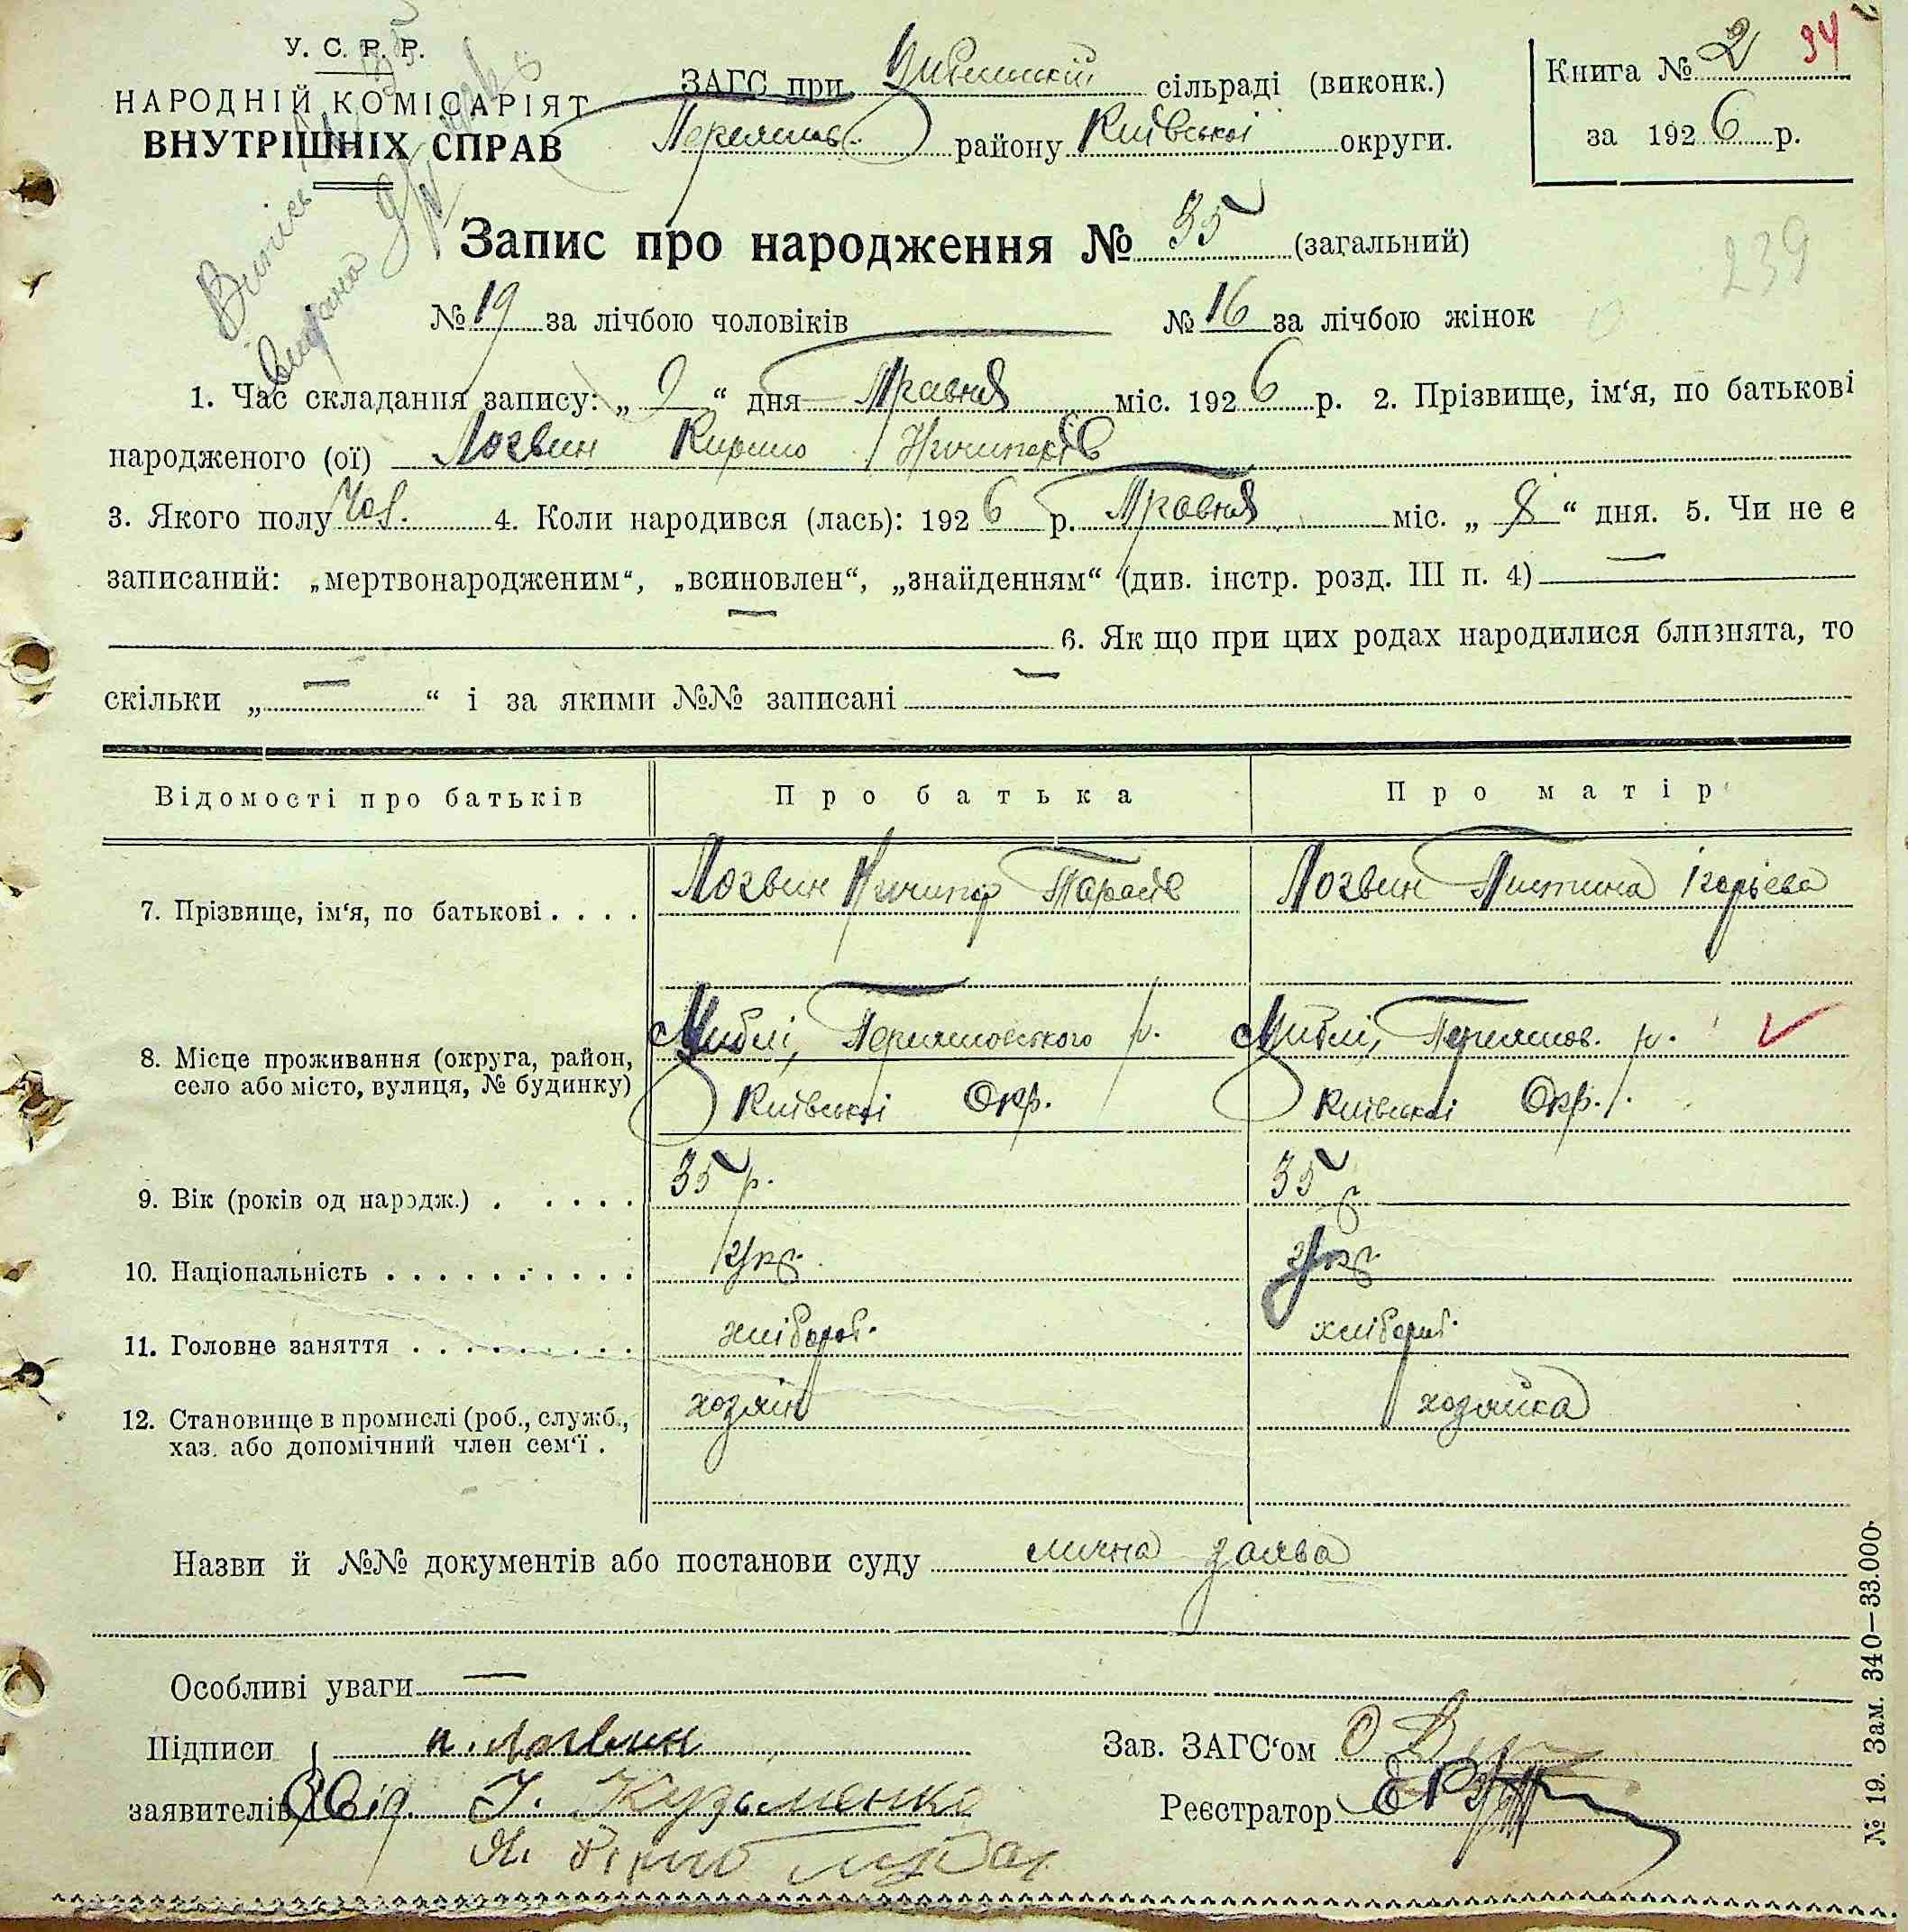 У. С. Р. Р.
НАРОДНІЙ КОМІСАРІЯТ
ВНУТРІШНІХ СПРАВ
ЗАГС при сільраді (виконк.)
Переяслав. району Київської округи.
Книга № 2 34
за 1926 р.
Запис про народження № 35 (загальний)
239
№ 19 за лічбою чоловіків № 16 за лічбою жінок
Випись
видана
1. Час складання запису: „ 9 “ дня Травня міс. 1926 р. 2. Прізвище, ім‘я, по батькові
народженого (ої) Логвин Кирило Ничипорів
3. Якого полу Чол. 4. Коли народився (лась): 1926 р. Травня міс. „ 8 “ дня. 5. Чи не є
записаний: „мертвонародженим“, „всиновлен“, „знайденням“ (див. інстр. розд. III п. 4) —
— 6. Як що при цих родах народилися близнята, то
скільки „ — “ і за якими №№ записані —
Відомості про батьків Про батька Про матір
7. Прізвище, ім‘я, по батькові . . . . Логвин Ничипор Тарасів Логвин Пистина Ігорьєва
8. Місце проживання (округа, район, Циблі, Переяславського р. Циблі, Переяслав. р.
село або місто, вулиця, № будинку) Київської Окр. Київської Окр.
9. Вік (років од народж.) . . . . . 35 р. 35 р.
10. Національність . . . . . . . . . . Укр. Укр.
11. Головне заняття . . . . . . . . . хлібороб. хлібороб.
12. Становище в промислі (роб., служб., хозяїн хозяйка
хаз. або допомічний член сем‘ї .
Назви й №№ документів або постанови суду лична заява
Особливі уваги —
Підписи н. Логвин Зав. ЗАГС‘ом
заявителів Свід. І. Кузьменко Реєстратор
№ 19. Зам. 340—33.000